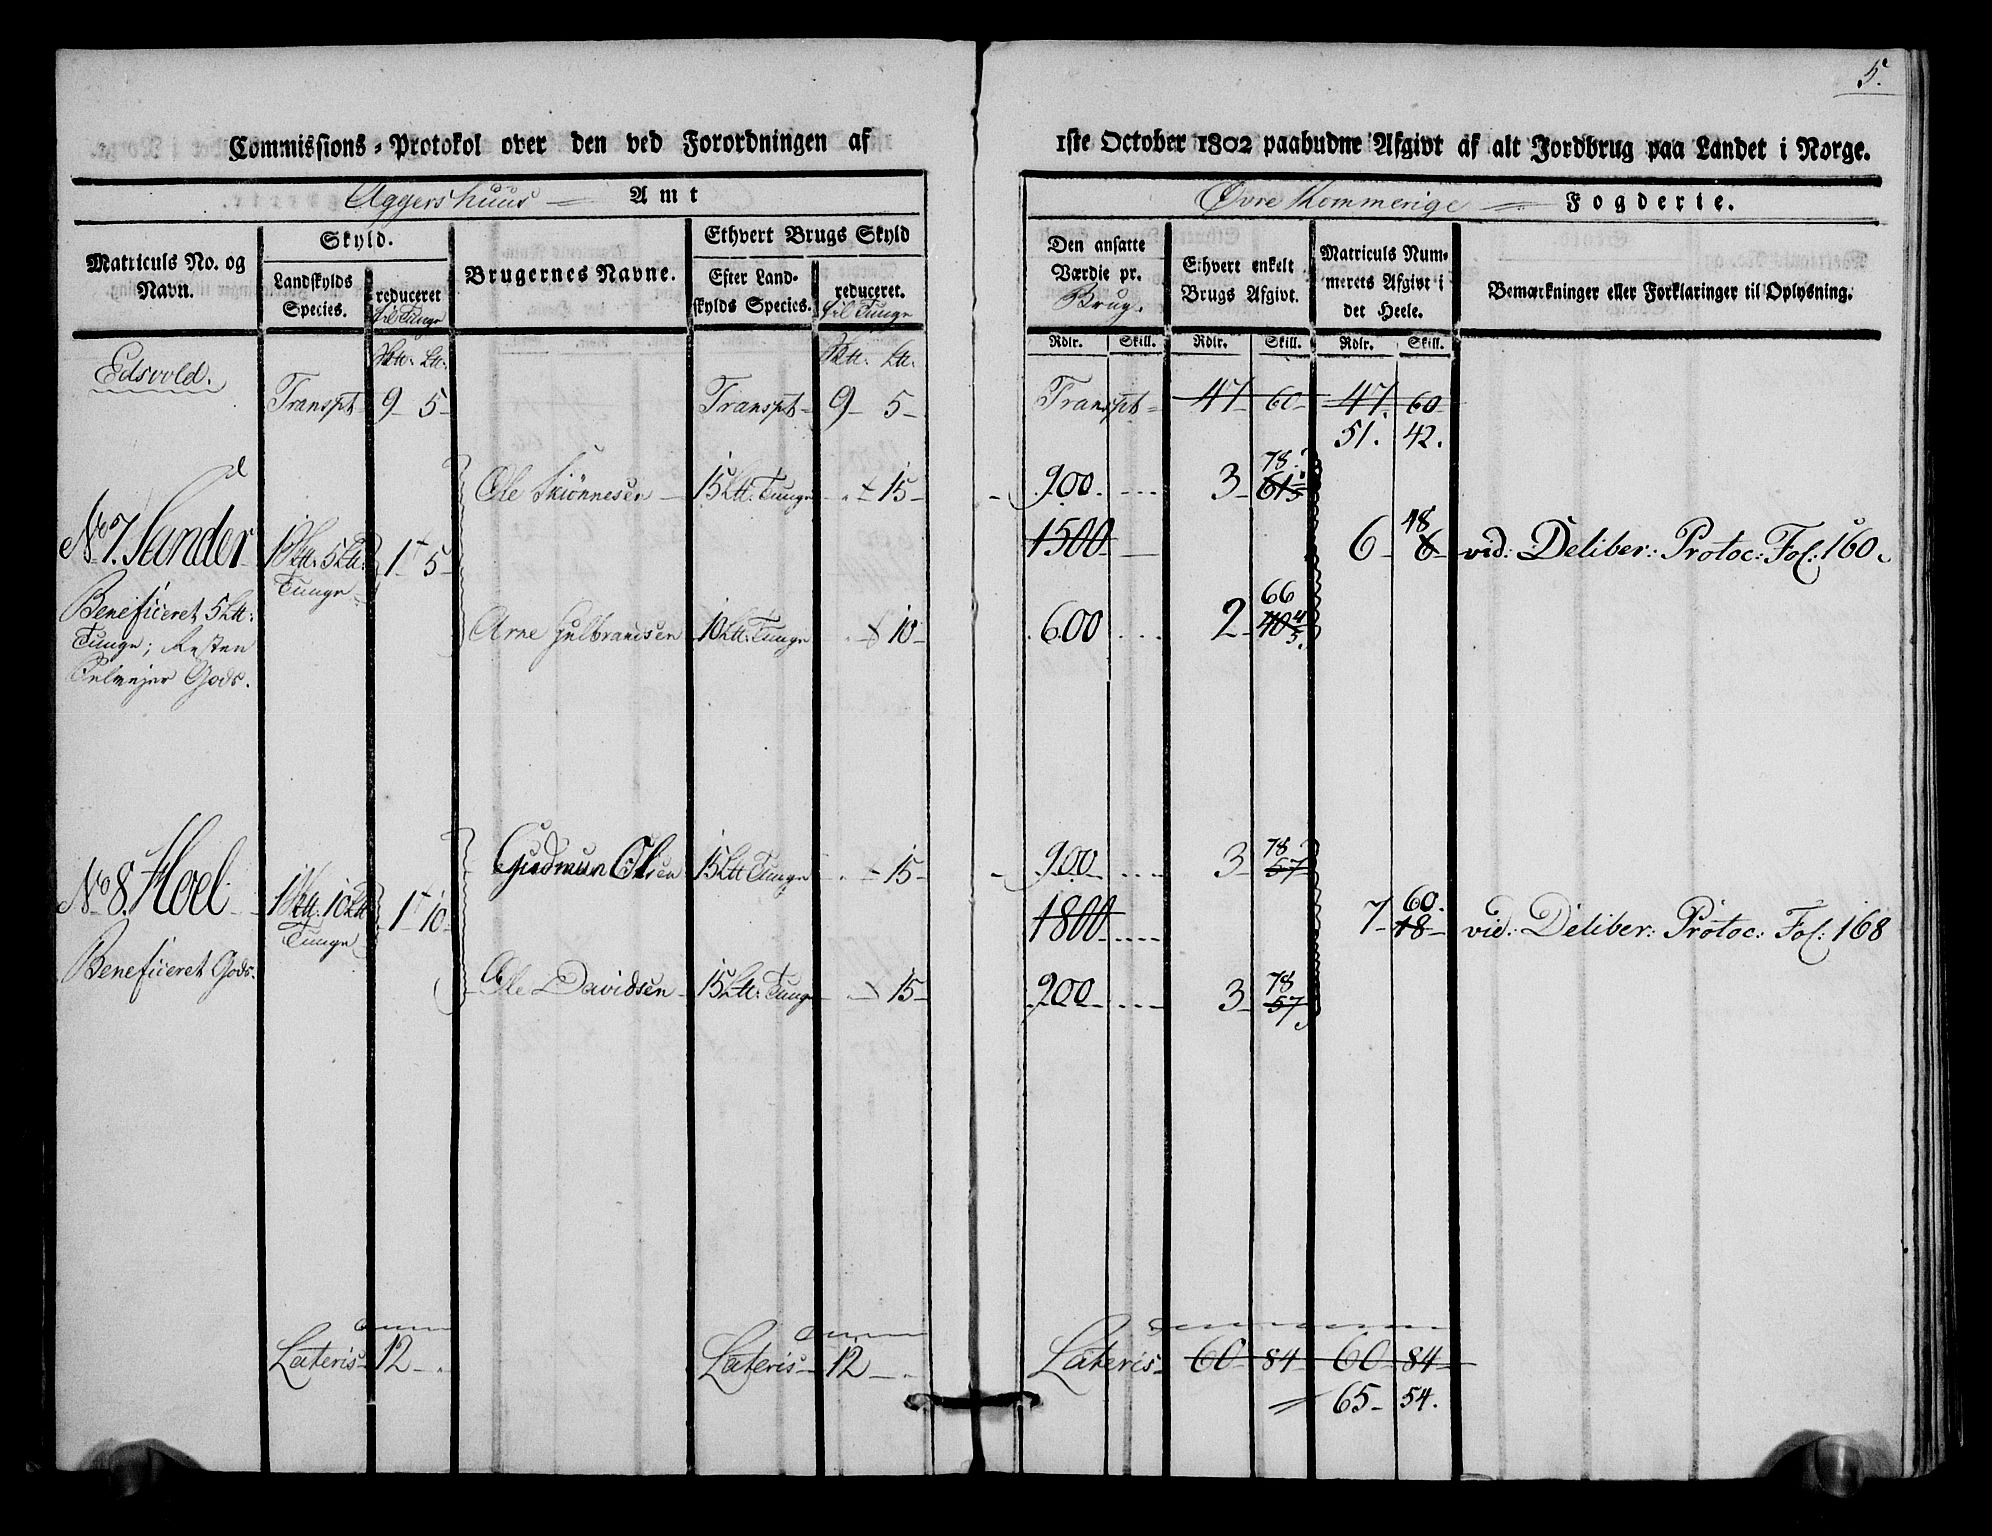 5.
Commissions-Protokol over den ved Forordningen af 1ste October 1802 paabudne Afgivt af alt Jordbrug paa Landet i Norge.
Aggershuus Amt
Øvre Rommerige Fogderie.
Matriculs No. og Navn.
Skyld.
Landskylds Species.
reduceret til Tunge
Brugernes Navne.
Ethvert Brugs Skyld
Efter Landskylds Species.
reduceret. til Tunge
Den ansatte Værdie pr. Brug.
Ethvert enkelt Brugs Afgivt.
Matriculs Nummerets Afgivt i det Heele.
Bemærkninger eller Forklaringer til Oplysning.
Rdlr. Skill. Rdlr. Skill. Rdlr. Skill.
Edsvold.
Transpt 9 - 5 - Transpt - 9 - 5 - Transpt - 47 - 60 - 47 - 60
51. 42.
Ole Skiönnesen 15 Ltt: Tunge 15 - 900. 3 - 78.
No 7. Sander 5 Ltt: Tunge 1 - 5 - 1500 6 - 48 vid: Deliber: Protoc: Fol: 160.
Beneficeret 5 Ltt: Tunge; Resten Gods.
Arne Gulbrandsen 10 Ltt: Tunge 10 - 600 2 - 66
Gudmun Olsen 15 Ltt Tunge 15 - 900 3 - 78 57
No 8. Hoel 10 Ltt Tunge 1 - 10 - 1800 7 - 60. 18 vid: Deliber: Protoc: Fol: 168
Beneficeret Gods.
Ole Davidsen 15 Ltt: Tunge 15 - 900 3 - 78 57
Lateris - 12 - . Lateris - 12 - . Lateris - 60 - 84 - 60 - 84
65 - 54.